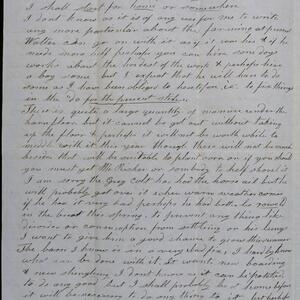 I shall start for home or somewhere
I dont know as it is of any use for me to write
any more particular about the farming at present
Walter can go on with it any it can be & if he
needs more help perhaps you can hire some days
works about the hardest of the work & perhaps hire
a boy some but I expect that he will have to do
some as I have been obliged to heretofore, i.e. to fix things
in the "do for the present state"
There is quite a large quantity of manure under the
barn floor but it cannot be got out without taking
up the floor & perhaps it will not be worth while to
meddle with it this year though there will not be much
besides that will be suitable to plant corn on if you should
you must get Mr or somebody to help shovel it
I am sorry the Gray Colt has the horse ail but he
will probably get over it when warm weather comes
if he has it very bad perhaps he had better be
in the breast this spring, to prevent any thing like
or consumption from settling on his lungs
I want to give him a good chance to grow this summer
The barn I know is in a very bad fix & I hardly know
what can be done with it. It wants new boarding
& new shingling I dont know as it can be patched
to do any good but I shall probably be at home before
it will be necessary to do any thing to it but